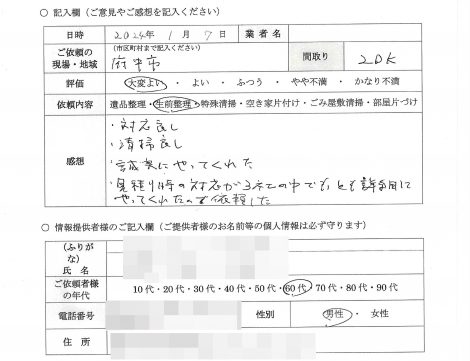 ○ 記入欄（ご意見やご感想を記入ください）
日時 2024年 1月 7日 業者名
ご依頼の現場・地域 （市区町村まで記入ください） 府中市 間取り 2DK
評価 大変よい ・ よい ・ ふつう ・ やや不満 ・ かなり不満
依頼内容 遺品整理・生前整理・特殊清掃・空き家片付け・ごみ屋敷清掃・部屋片づけ
感想
・対応良し
・清掃良し
・誠実にやってくれた
・見積り時の対応が3社の中でも、とても
やってくれたので依頼した
○ 情報提供者様のご記入欄（ご提供者様のお名前等の個人情報は必ず守ります）
（ふりがな）
氏名
ご依頼者様の年代 10代・20代・30代・40代・50代・60代・70代・80代・90代
電話番号 性別 男性 ・ 女性
住所